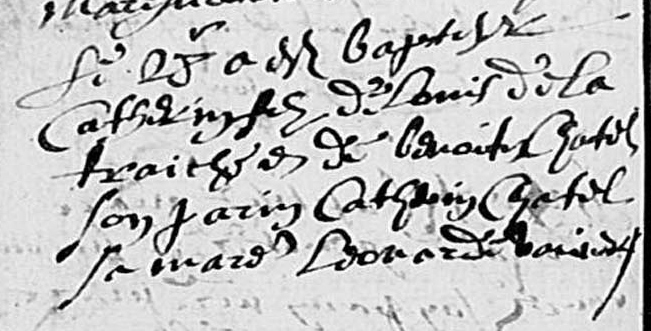 Le 25 a esté baptisé
Catherin filz de Louis de la
traiche et de benoiste Chatel
son parin Catherin Chatel
sa mare Leonarde